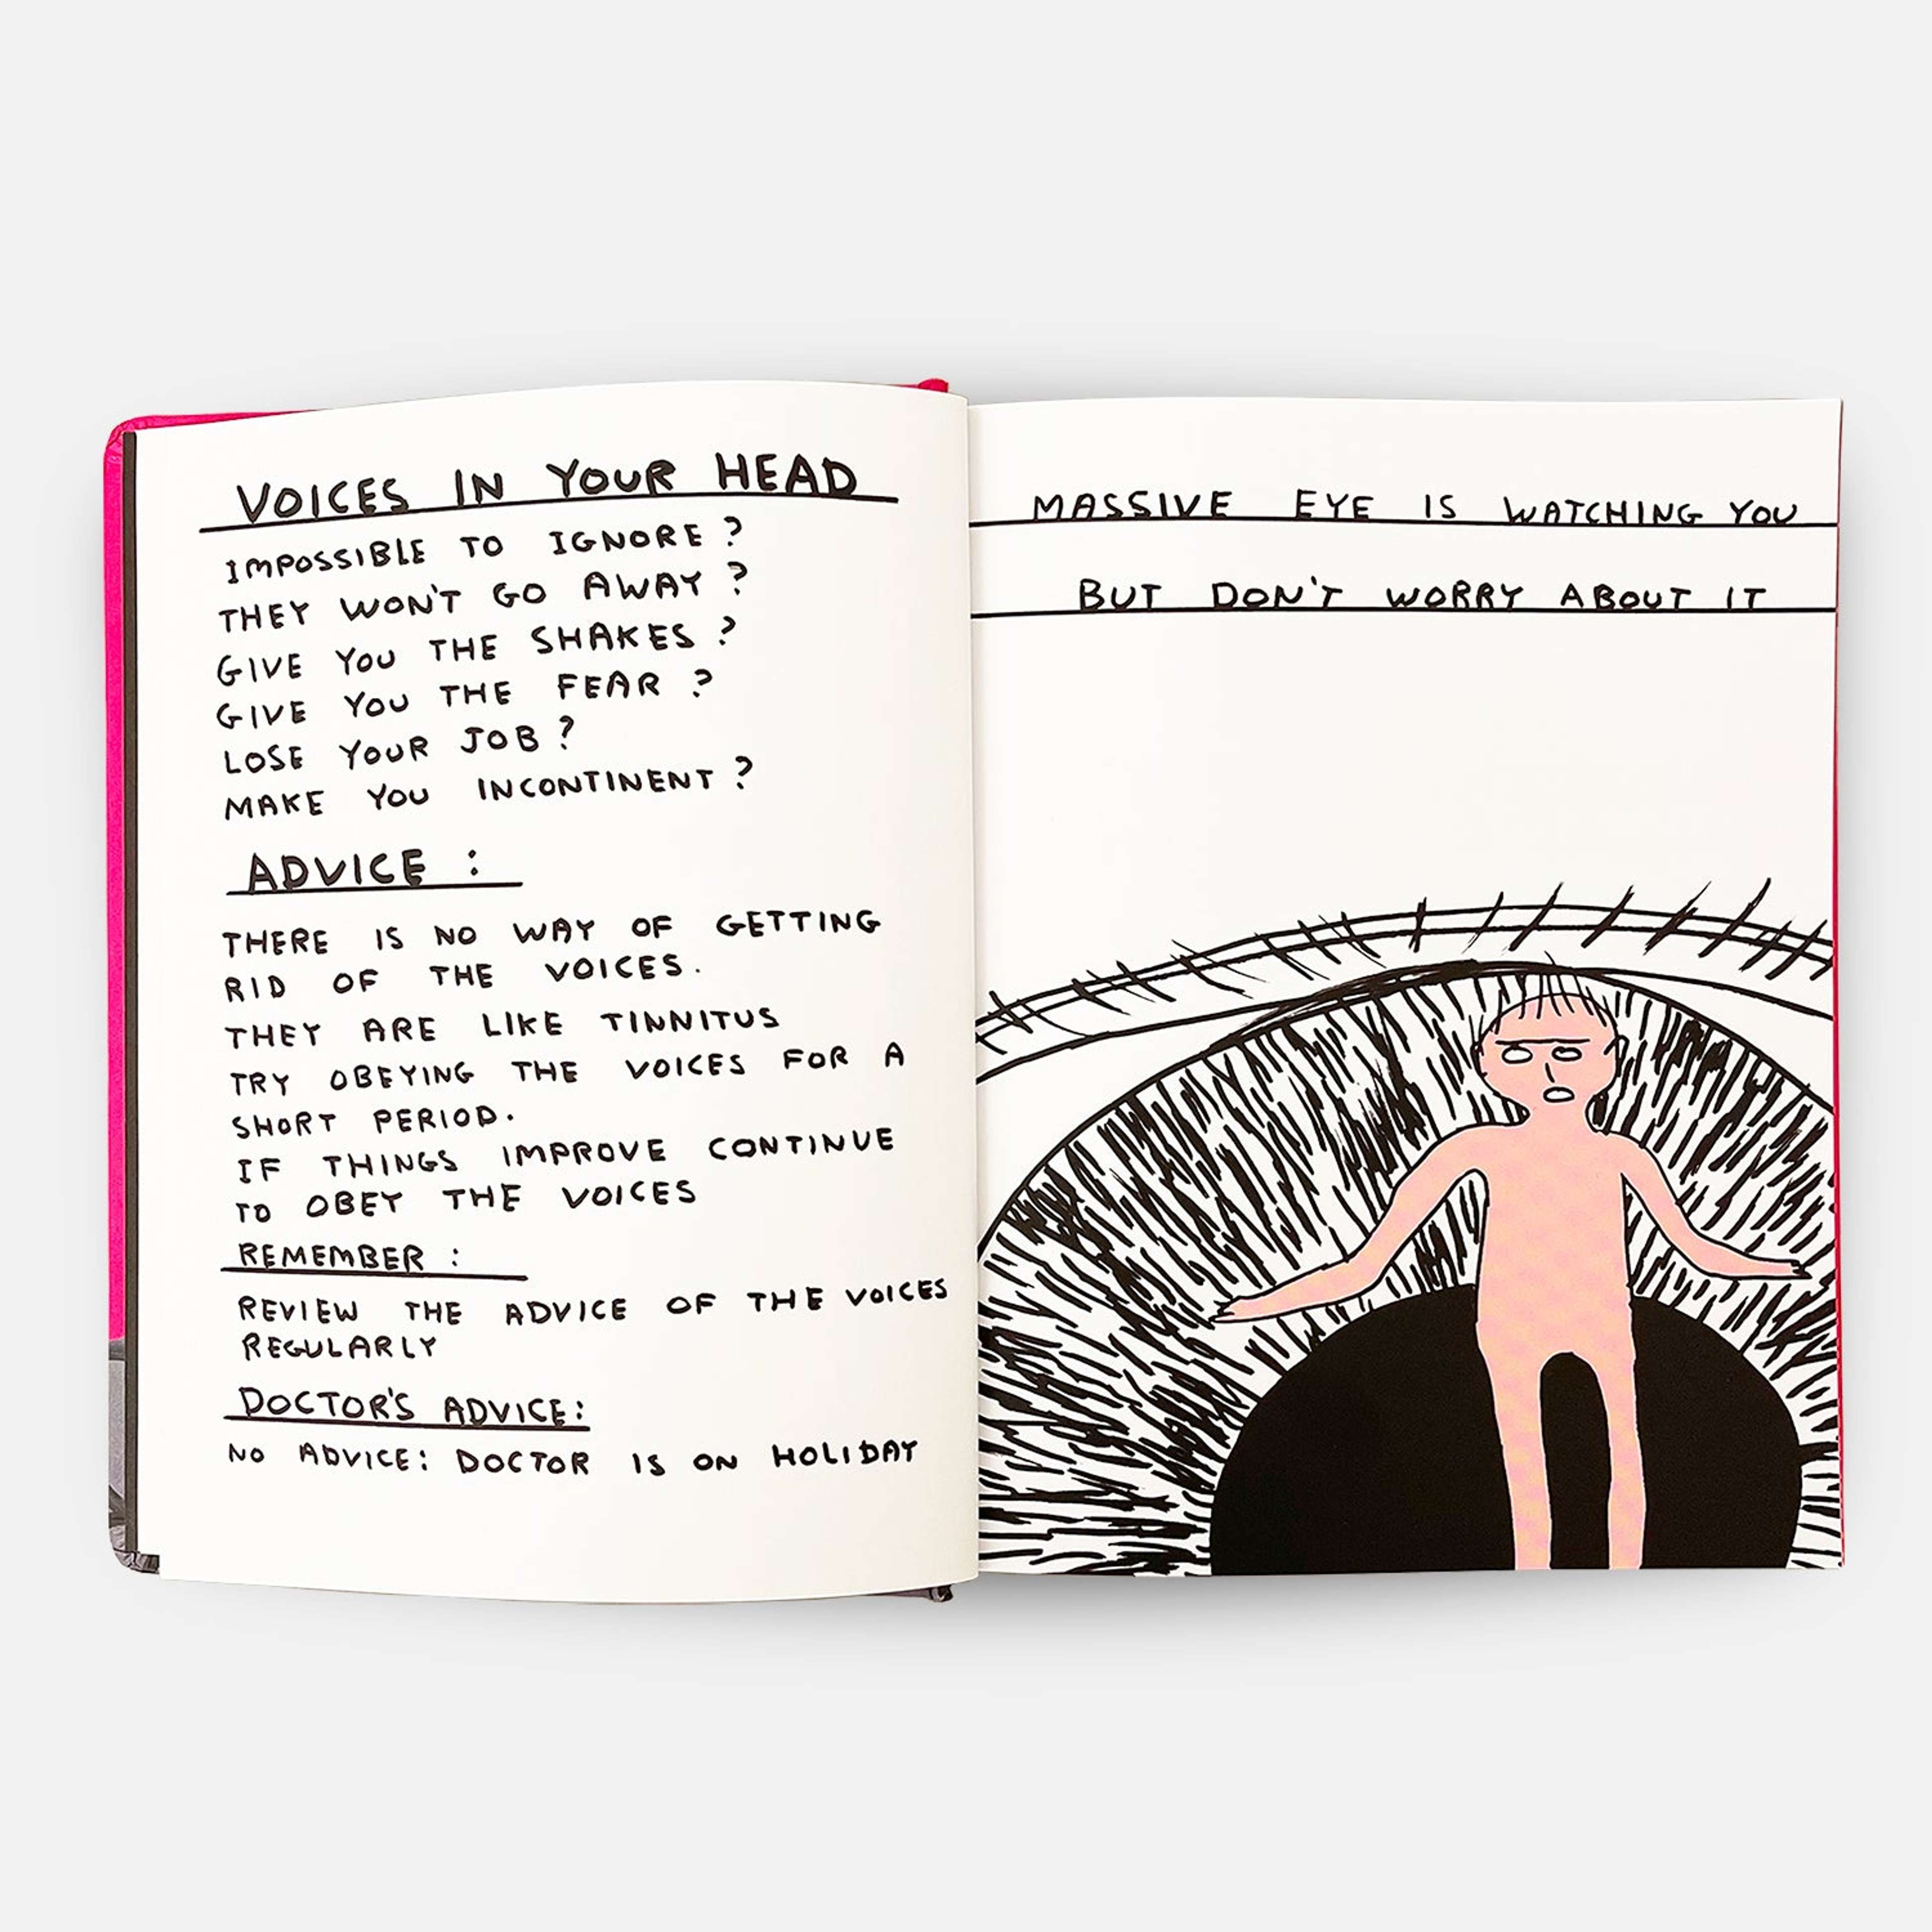 VOICES IN YOUR HEAD
IMPOSSIBLE TO IGNORE?
THEY WON'T GO AWAY?
GIVE YOU THE SHAKES?
GIVE YOU THE FEAR?
LOSE YOUR JOB?
MAKE YOU INCONTINENT?
ADVICE:
THERE IS NO WAY OF GETTING
RID OF THE VOICES.
THEY ARE LIKE TINNITUS
TRY OBEYING THE VOICES FOR A
SHORT PERIOD.
IF THINGS IMPROVE CONTINUE
TO OBEY THE VOICES
REMEMBER:
REVIEW THE ADVICE OF THE VOICES
REGULARLY
DOCTOR'S ADVICE:
NO ADVICE: DOCTOR IS ON HOLIDAY
MASSIVE EYE IS WATCHING YOU
BUT DON'T WORRY ABOUT IT